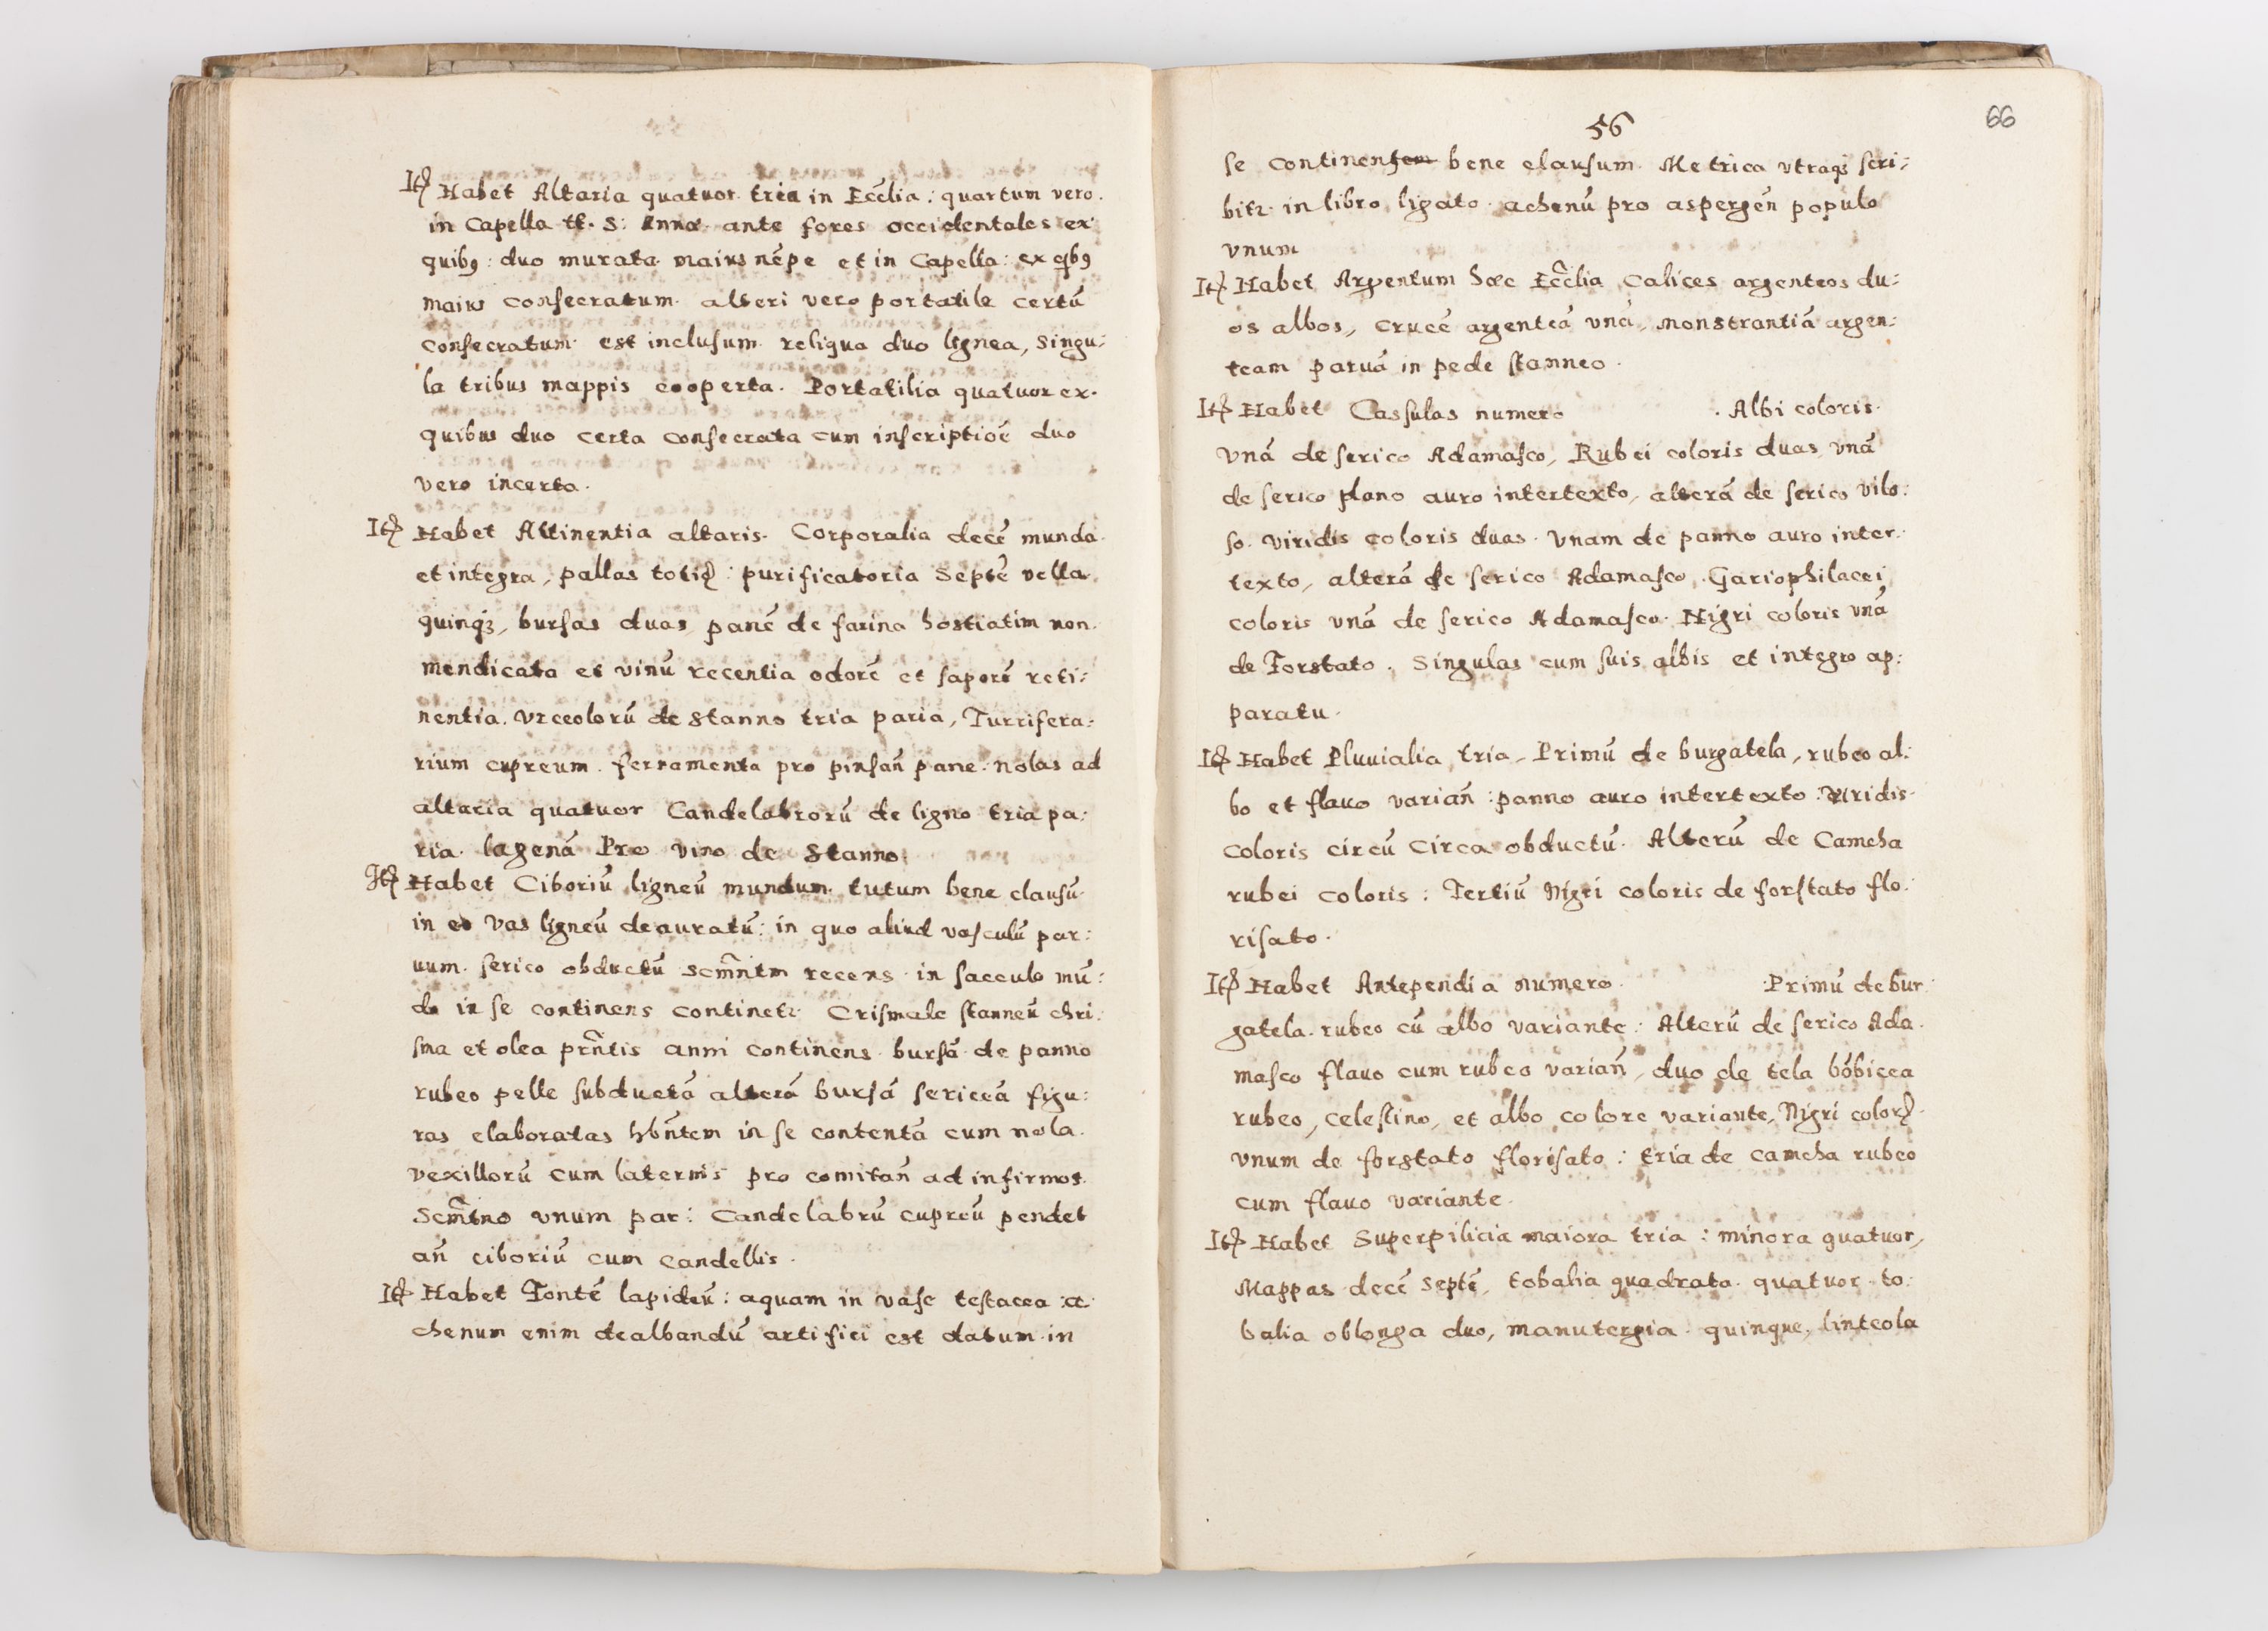 Itꝭ Habet Altaria quatuor. tria in Ecc̃lia: quartum vero.
in Capella tt. S: Annæ. ante fores occidentales ex
quibꝯ: duo murata maius nẽpe et in Capella: ex qbꝯ
maius consecratum. alteri vero portatile certũ
consecratum est inclusum. reliqua duo lignea, singu:
la tribus mappis cooperta. Portatilia quatuor ex.
quibus duo certa consecrata cum inscriptiõe duo
vero incerta.
Itꝭ Habet Attinentia altaris. Corporalia decẽ munda.
et integra, pallas totiꝭ: purificatoria septẽ vella
quinqꝫ, bursas duas, panẽ de farina hostiatim non.
mendicata et vinũ recentia odorẽ et saporẽ reti:
nentia. Vrceolorũ de stanno tria paria, Turrifera:
rium cupreum. ferramenta pro pinsañ pane. nolas ad
altaria quatuor Candelabrorũ de ligno tria pa:
ria. lagenã Pro vino de stanno.
Itꝭ Habet Ciboriũ ligneũ mundum. tutum bene clausũ
in eo vas ligneũ deauratũ: in quo aliud vasculũ par:
uum. serico obductũ scm̃ntm recens in sacculo mũ:
do in se continens continetꝛ. Crismale stanneũ chri:
sma et olea prñtis anni continens. bursã de panno
rubeo pelle subductã alterã bursã sericeã figu:
ras elaboratas hbñtem in se contentã cum nola.
vexillorũ cum laternis pro comitañ ad infirmos.
Scm̃tno vnum par: Candelabrũ cupreũ pendet
añ ciboriũ cum candellis.
Itꝭ Habet Fontẽ lapideũ: aquam in vase testacea :a:
chenum enim dealbandũ artifici est datum in
56
66
se continentem bene clausum. Metrica vtraqꝫ scri:
bitꝛ in libro ligato. achenũ pro aspergeñ populo
vnum
Itꝭ Habet Argentum hæc Ecc̃lia Calices argenteos du:
os albos, crucẽ argenteã vnã, monstrantiã argen:
team paruã in pede stanneo.
Itꝭ Habet Cassulas numero . Albi coloris.
vnã de serico Adamasco, Rubei coloris duas, vnã
de serico plano auro intertexto, alterã de serico vilo:
so. viridis coloris duas. Vnam de panno auro inter:
texto, alterã de serico Adamasco. Gariophilacei
coloris vnã de serico Adamasco. Nigri coloris vnã
de Forstato. Singulas cum suis albis et integro ap:
paratu.
Itꝭ Habet Pluuialia tria, Primũ de burgatela, rubeo al:
bo et flauo variañ: panno auro intertexto: viridis
coloris circũ circa obductũ. Alterũ de Camcha
rubei coloris: Tertiũ Nigri coloris de forstato flo:
risato.
Itꝭ Habet Antependia numero. Primũ de bur
gatela. rubeo cũ albo variante: Alterũ de serico Ada.
masco flauo cum rubeo variañ, duo de tela bõbicea
rubeo, celestino, et albo colore variante, Nigri colorꝭ
vnum de forstato florisato: tria de camcha rubeo
cum flauo variante.
Itꝭ Habet Superpilicia maiora tria: minora quatuor,
Mappas decẽ septẽ, tobalia quadrata quatuor to:
balia oblonga duo, manutergia quinque, linteola